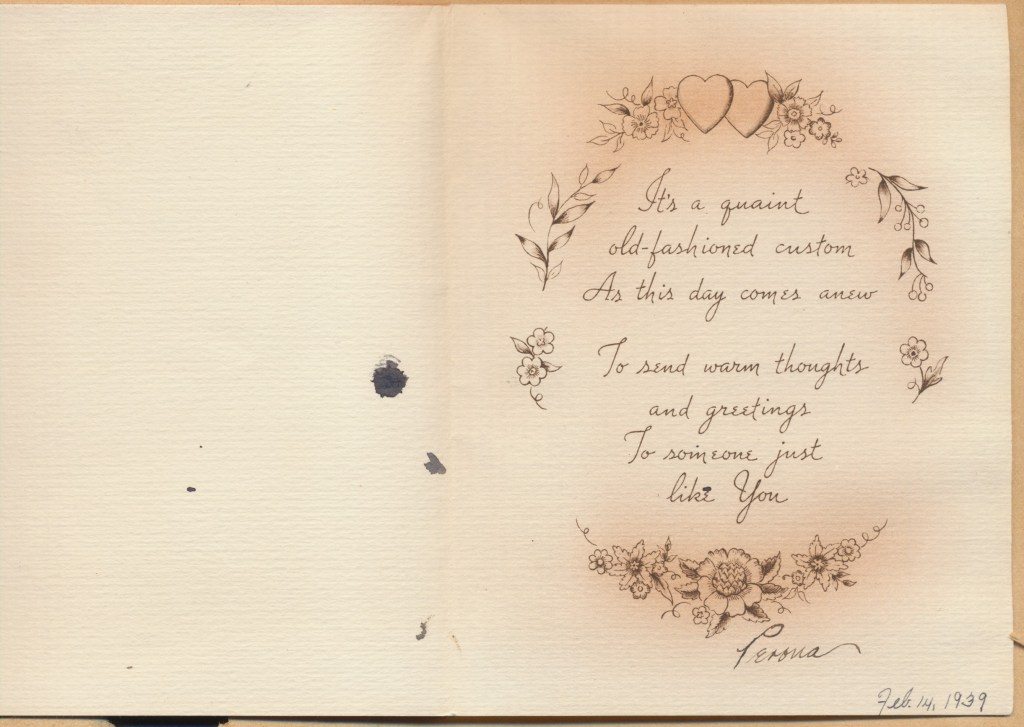 It's a quaint
old-fashioned custom
As this day comes anew
To send warm thoughts
and greetings
To someone just
like You
Perona
Feb. 14, 1939